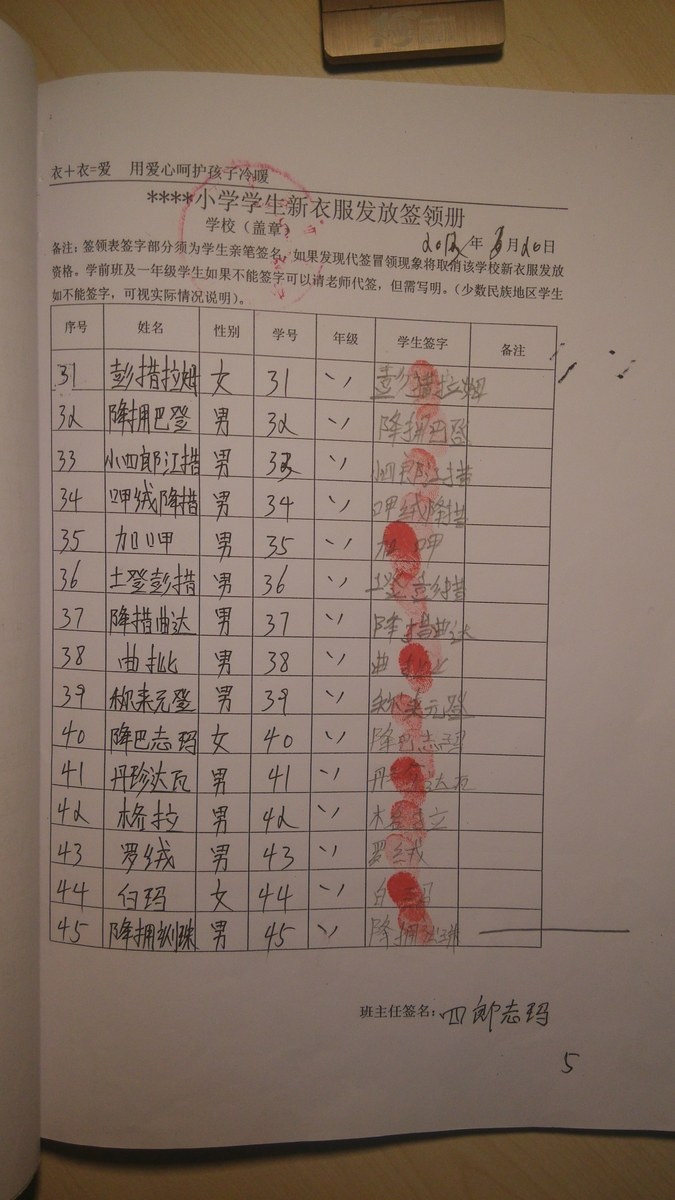 衣+衣=爱 用爱心呵护孩子冷暖
****小学学生新衣服发放签领册
学校（盖章） 年 月20日
备注：签领表签字部分须为学生亲笔签名，如果发现代签冒领现象将取消该学校新衣服发放
资格。学前班及一年级学生如果不能签字可以请老师代签，但需写明。（少数民族地区学生
如不能签字，可视实际情况说明）。
序号 姓名 性别 学号 年级 学生签字 备注
31 彭措拉姆 女 31 〃 彭措拉姆
32 降拥巴登 男 32 〃 降拥巴登
33 小四郎江措 男 33 〃 小四郎江措
34 呷绒降措 男 34 〃 呷绒降措
35 加呷 男 35 〃 加呷
36 土登彭措 男 36 〃 土登彭措
37 降措曲达 男 37 〃 降措曲达
38 曲批 男 38 〃 曲批
39 称来元登 男 39 〃 称来元登
40 降巴志玛 女 40 〃 降巴志玛
41 丹珍达瓦 男 41 〃 丹 达瓦
42 格拉 男 42 〃
43 罗绒 男 43 〃 罗绒
44 白玛 女 44 〃 白玛
45 降拥 珠 男 45 〃 降拥
班主任签名：四郎志玛
5